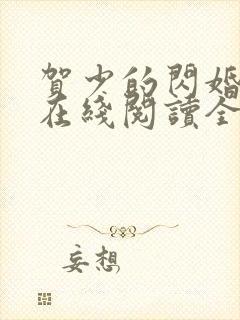 賀少的閃婚
在綫閱讀全
妄想